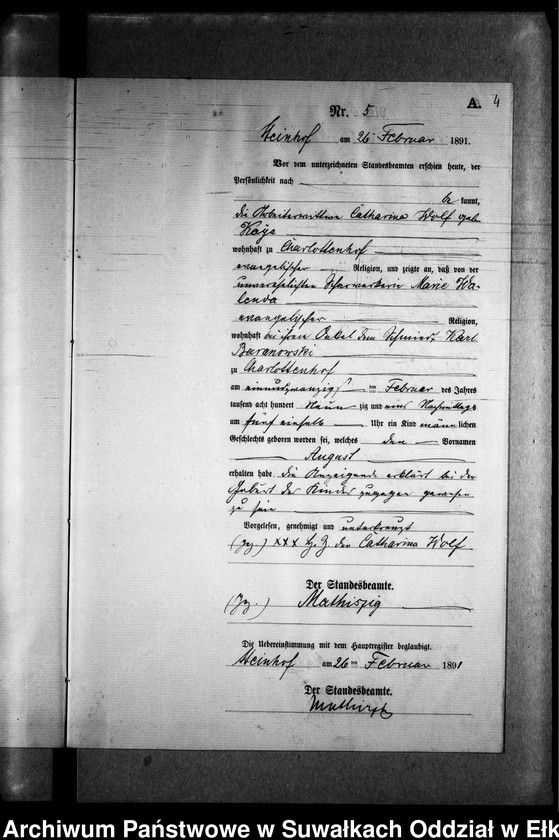 A. 4
Nr. 5
Steinhof am 26 ten Februar 1891.
Vor dem unterzeichneten Standesbeamten erschien heute, der
Persönlichkeit nach
be kannt,
die Arbeiterwittwe Catharina Wolf geb.
wohnhaft zu Charlottenhof
evangelischer Religion, und zeigte an, daß von der
unverehelichten Marie Wa-
lenda
evangelischer Religion,
wohnhaft bei ihrem Onkel dem Schmied Karl
Baranowski
zu Charlottenhof
am einundzwanzigsten Februar des Jahres
tausend acht hundert Neun zig und eins Nachmittags
um fünf einhalb Uhr ein Kind männ lichen
Geschlechts geboren worden sei, welches den Vornamen
August
erhalten habe. die Anzeigende erklärt bei der
Geburt des Kindes zugegen gewesen
zu sein
Vorgelesen, genehmigt und unterkreuzt
(gez.) XXX der Catharina Wolf
Der Standesbeamte.
(gez.)
Die Uebereinstimmung mit dem Hauptregister beglaubigt.
Steinhof am 26 ten Februar 1891
Der Standesbeamte.
Archiwum Państwowe w Suwałkach Oddział w Ełk